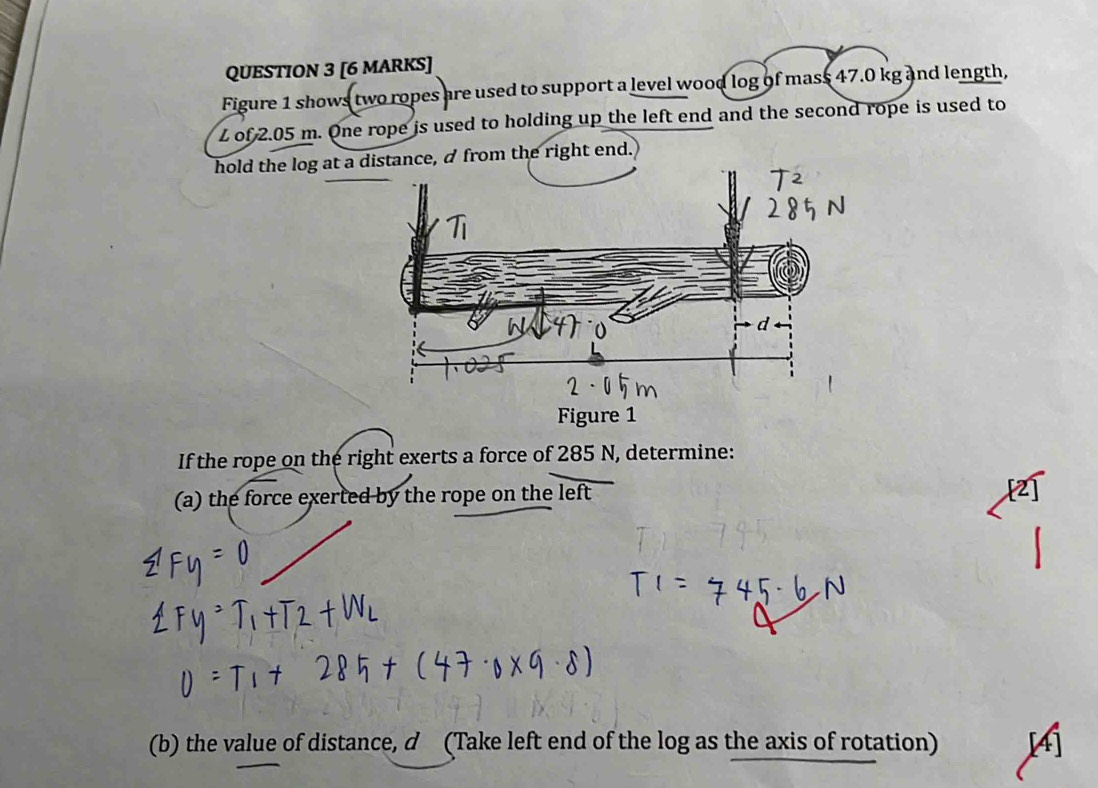 QUESTION 3 [6 MARKS]
Figure 1 shows two ropes are used to support a level wood log of mass 47.0 kg and length,
L of 2.05 m. One rope is used to holding up the left end and the second rope is used to
hold the log at a distance, d from the right end.
T2
285 N
T1
W 47.0
d
1.025
2.05 m
Figure 1
If the rope on the right exerts a force of 285 N, determine:
(a) the force exerted by the rope on the left [2]
1
ΣFy = 0
T1 = 745.6 N
ΣFy = T1 + T2 + WL
0 = T1 + 285 + (47.0 x 9.8)
(b) the value of distance, d (Take left end of the log as the axis of rotation) [4]